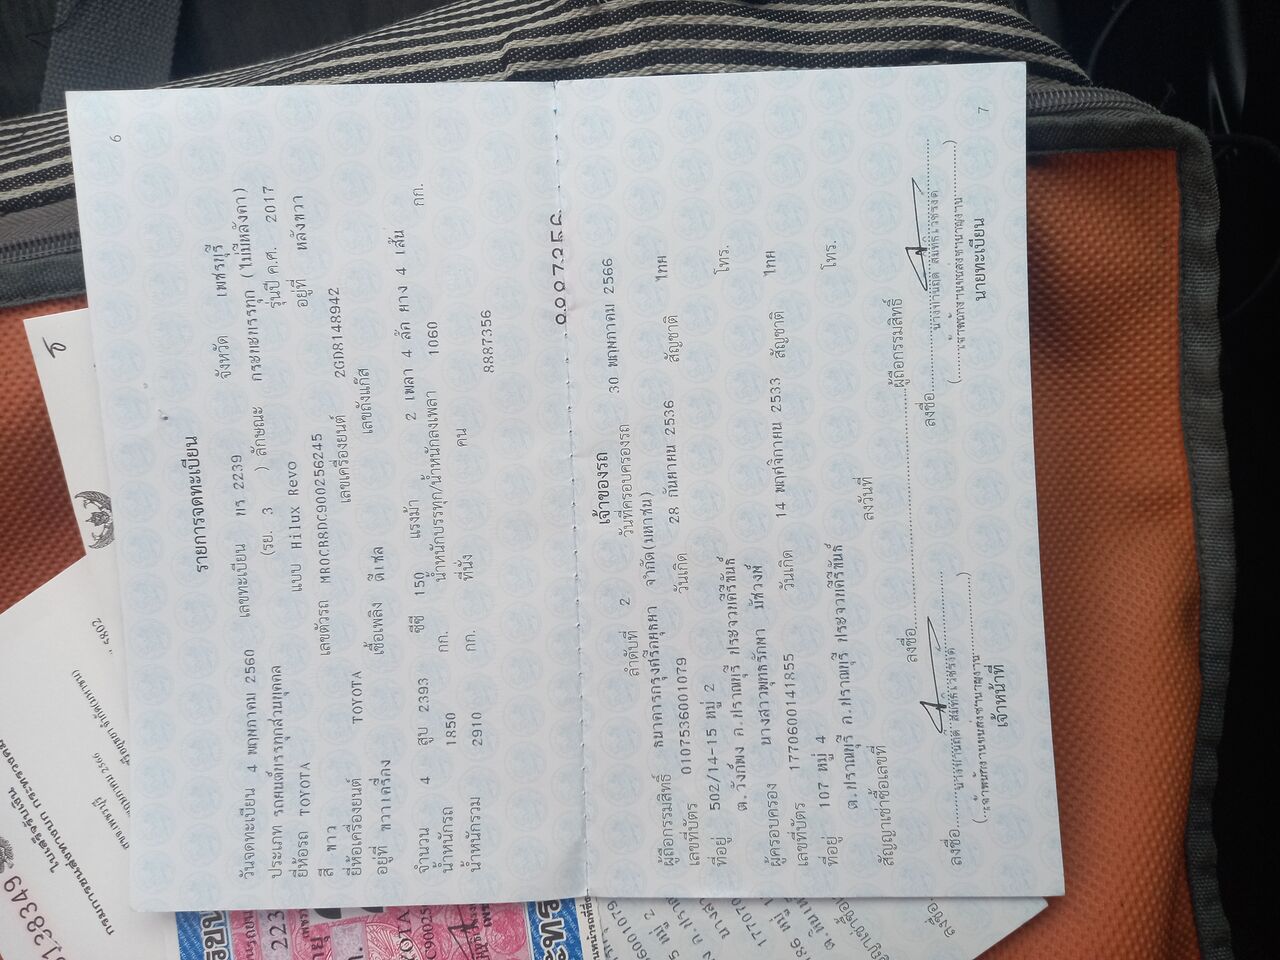 6
รายการจดทะเบียน
วันจดทะเบียน 4 พฤษภาคม 2560 เลขทะเบียน 2239 จังหวัด เพชรบุรี
ประเภท รถยนต์บรรทุกส่วนบุคคล (รย. 3 ) ลักษณะ กระบะบรรทุก (ไม่มีหลังคา)
ยี่ห้อรถ TOYOTA แบบ Hilux Revo รุ่นปี ค.ศ. 2017
สี ขาว เลขตัวรถ MR0CB8DC900256245 อยู่ที่ หลังขวา
ยี่ห้อเครื่องยนต์ TOYOTA เลขเครื่องยนต์ 2GD8148942
อยู่ที่ ขวาเครื่อง เชื้อเพลิง ดีเซล เลขถังแก๊ส
จำนวน 4 สูบ 2393 ซีซี 150 แรงม้า 2 เพลา 4 ล้อ ยาง 4 เส้น
น้ำหนักรถ 1850 กก. น้ำหนักบรรทุก/น้ำหนักลงเพลา 1060 กก.
น้ำหนักรวม 2910 กก. ที่นั่ง คน 8887356
เจ้าของรถ
ลำดับที่ 2 วันที่ครอบครองรถ 30 พฤษภาคม 2566
ผู้ถือกรรมสิทธิ์ ธนาคารกรุงศรีอยุธยา จำกัด(มหาชน)
เลขที่บัตร 0107536001079 วันเกิด 28 กันยายน 2536 สัญชาติ ไทย
ที่อยู่ 502/14-15 หมู่ 2
ต.วังก์พง อ.ปราณบุรี ประจวบคีรีขันธ์ โทร.
ผู้ครอบครอง นางสาวพุทธรักษา
เลขที่บัตร 1770600141855 วันเกิด 14 พฤศจิกายน 2533 สัญชาติ ไทย
ที่อยู่ 107 หมู่ 4
ต.ปราณบุรี อ.ปราณบุรี ประจวบคีรีขันธ์ โทร.
สัญญาเช่าซื้อเลขที่ ลงวันที่
ลงชื่อ ผู้ถือกรรมสิทธิ์
ลงชื่อ ลงชื่อ
(เจ้าพนักงานขนส่งชำนาญงาน) (เจ้าพนักงานขนส่งชำนาญงาน)
เจ้าหน้าที่ นายทะเบียน
7